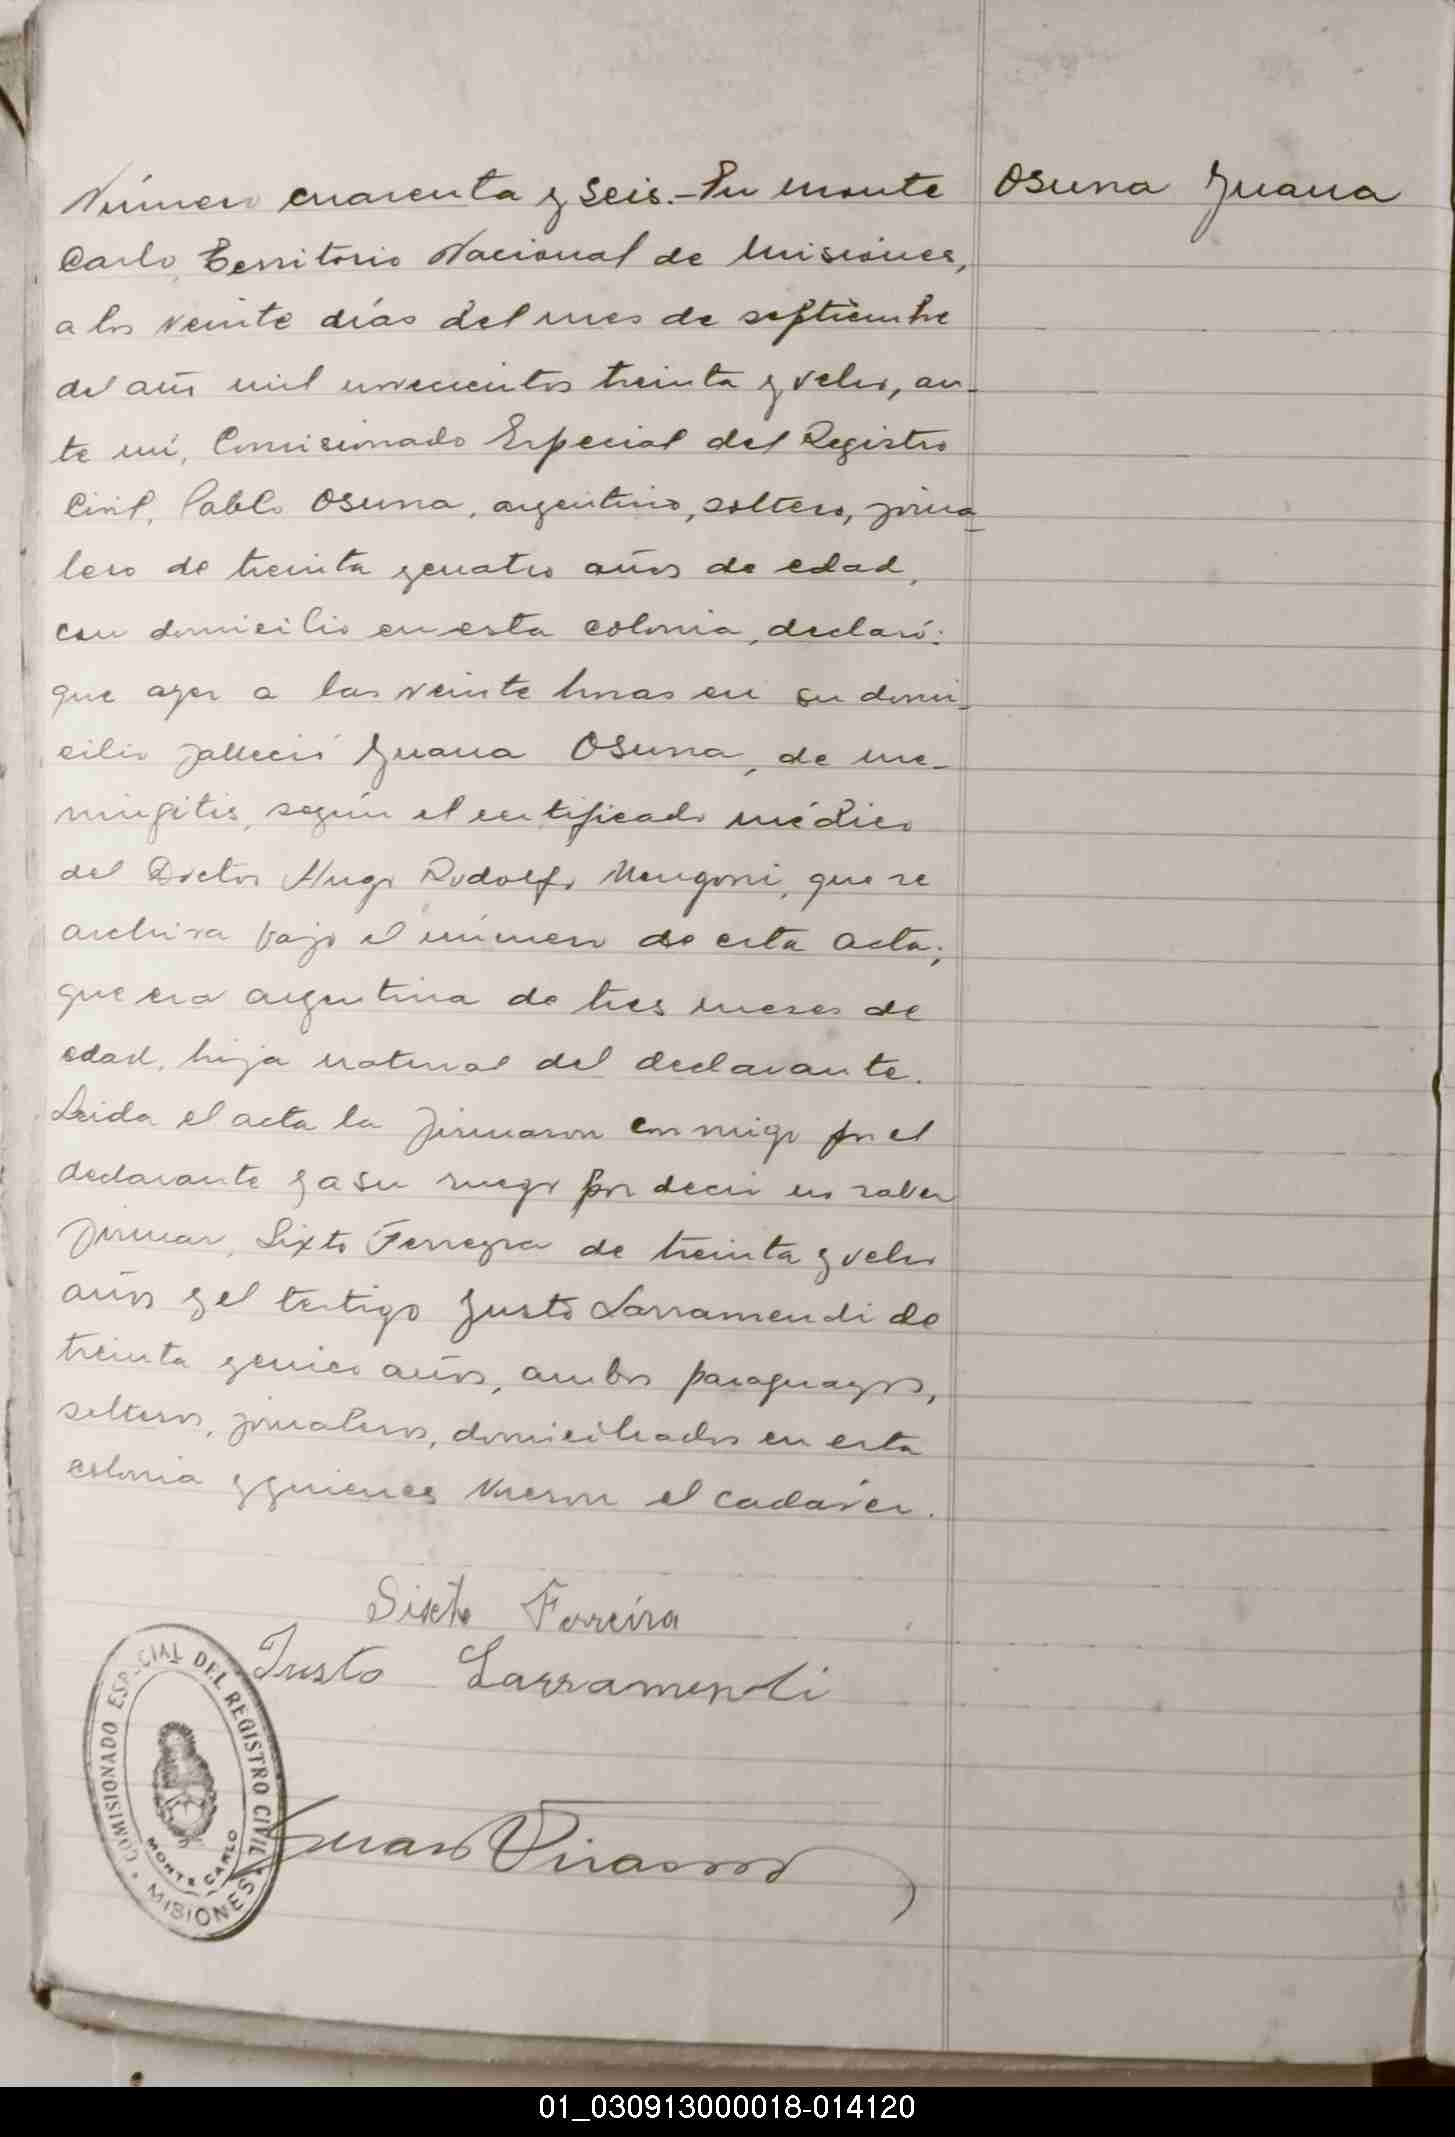 Número cuarenta y seis.- En monte
Carlo, Territorio Nacional de Misiones,
a los veinte días del mes de septiembre
del año mil novecientos treinta y ocho, an-
te mí, Comisionado Especial del Registro
Civil, Pablo Osuna, argentino, soltero, jorna-
lero de treinta y cuatro años de edad,
con domicilio en esta colonia, declaró:
que ayer a las veinte horas en su domi-
cilio falleció Juana Osuna, de me-
ningitis, según el certificado médico
del Doctor Hugo Rodolfo Mengoni, que se
archiva bajo el número de esta acta;
que era argentina de tres meses de
edad, hija natural del declarante.
Leida el acta la firmaron conmigo por el
declarante y a su ruego por decir no saber
firmar, Sixto Ferreyra de treinta y ocho
años y el testigo Justo Larramendi de
treinta y cinco años, ambos paraguayos,
solteros, jornaleros, domiciliados en esta
colonia y quienes vieron el cadáver.
Osuna Juana
Sixto Ferreira
Justo Larramendi
Juan
COMISIONADO ESPECIAL DEL REGISTRO CIVIL
MONTE CARLO
MISIONES
01_030913000018-014120